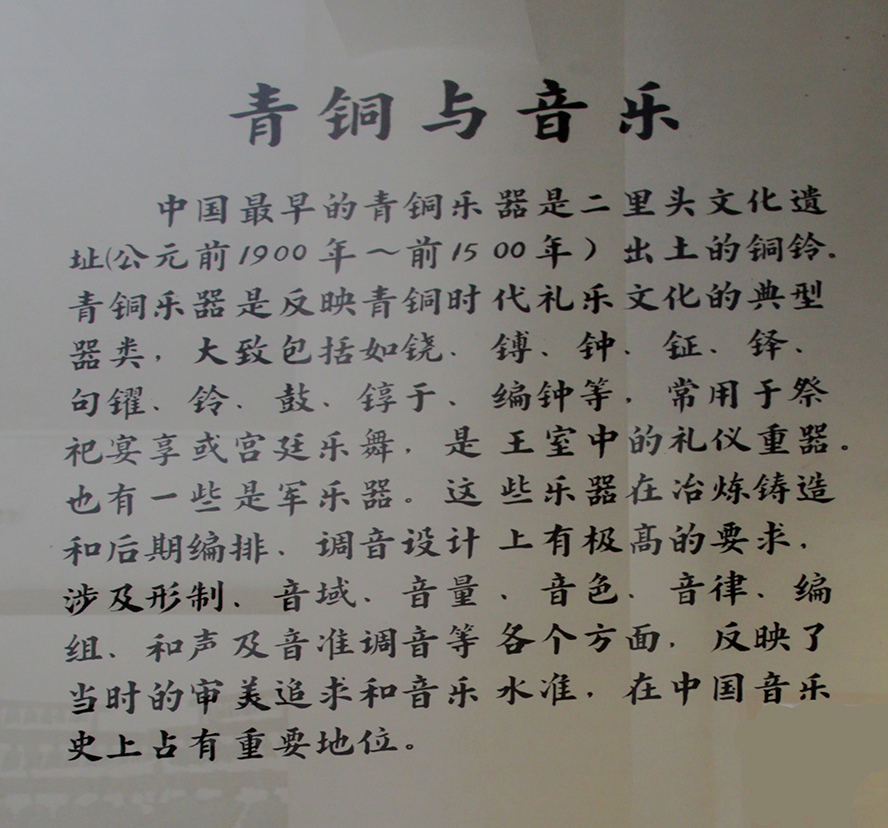 青铜与音乐
中国最早的青铜乐器是二里头文化遗
址(公元前1900年～前1500年）出土的铜铃.
青铜乐器是反映青铜时代礼乐文化的典型
器类，大致包括如铙、镈、钟、钲、铎、
句鑃、铃、鼓、錞于、编钟等，常用于祭
祀宴享或宫廷乐舞，是王室中的礼仪重器。
也有一些是军乐器。这些乐器在冶炼铸造
和后期编排、调音设计上有极高的要求，
涉及形制、音域、音量、音色、音律、编
组、和声及音准调音等各个方面，反映了
当时的审美追求和音乐水准，在中国音乐
史上占有重要地位。